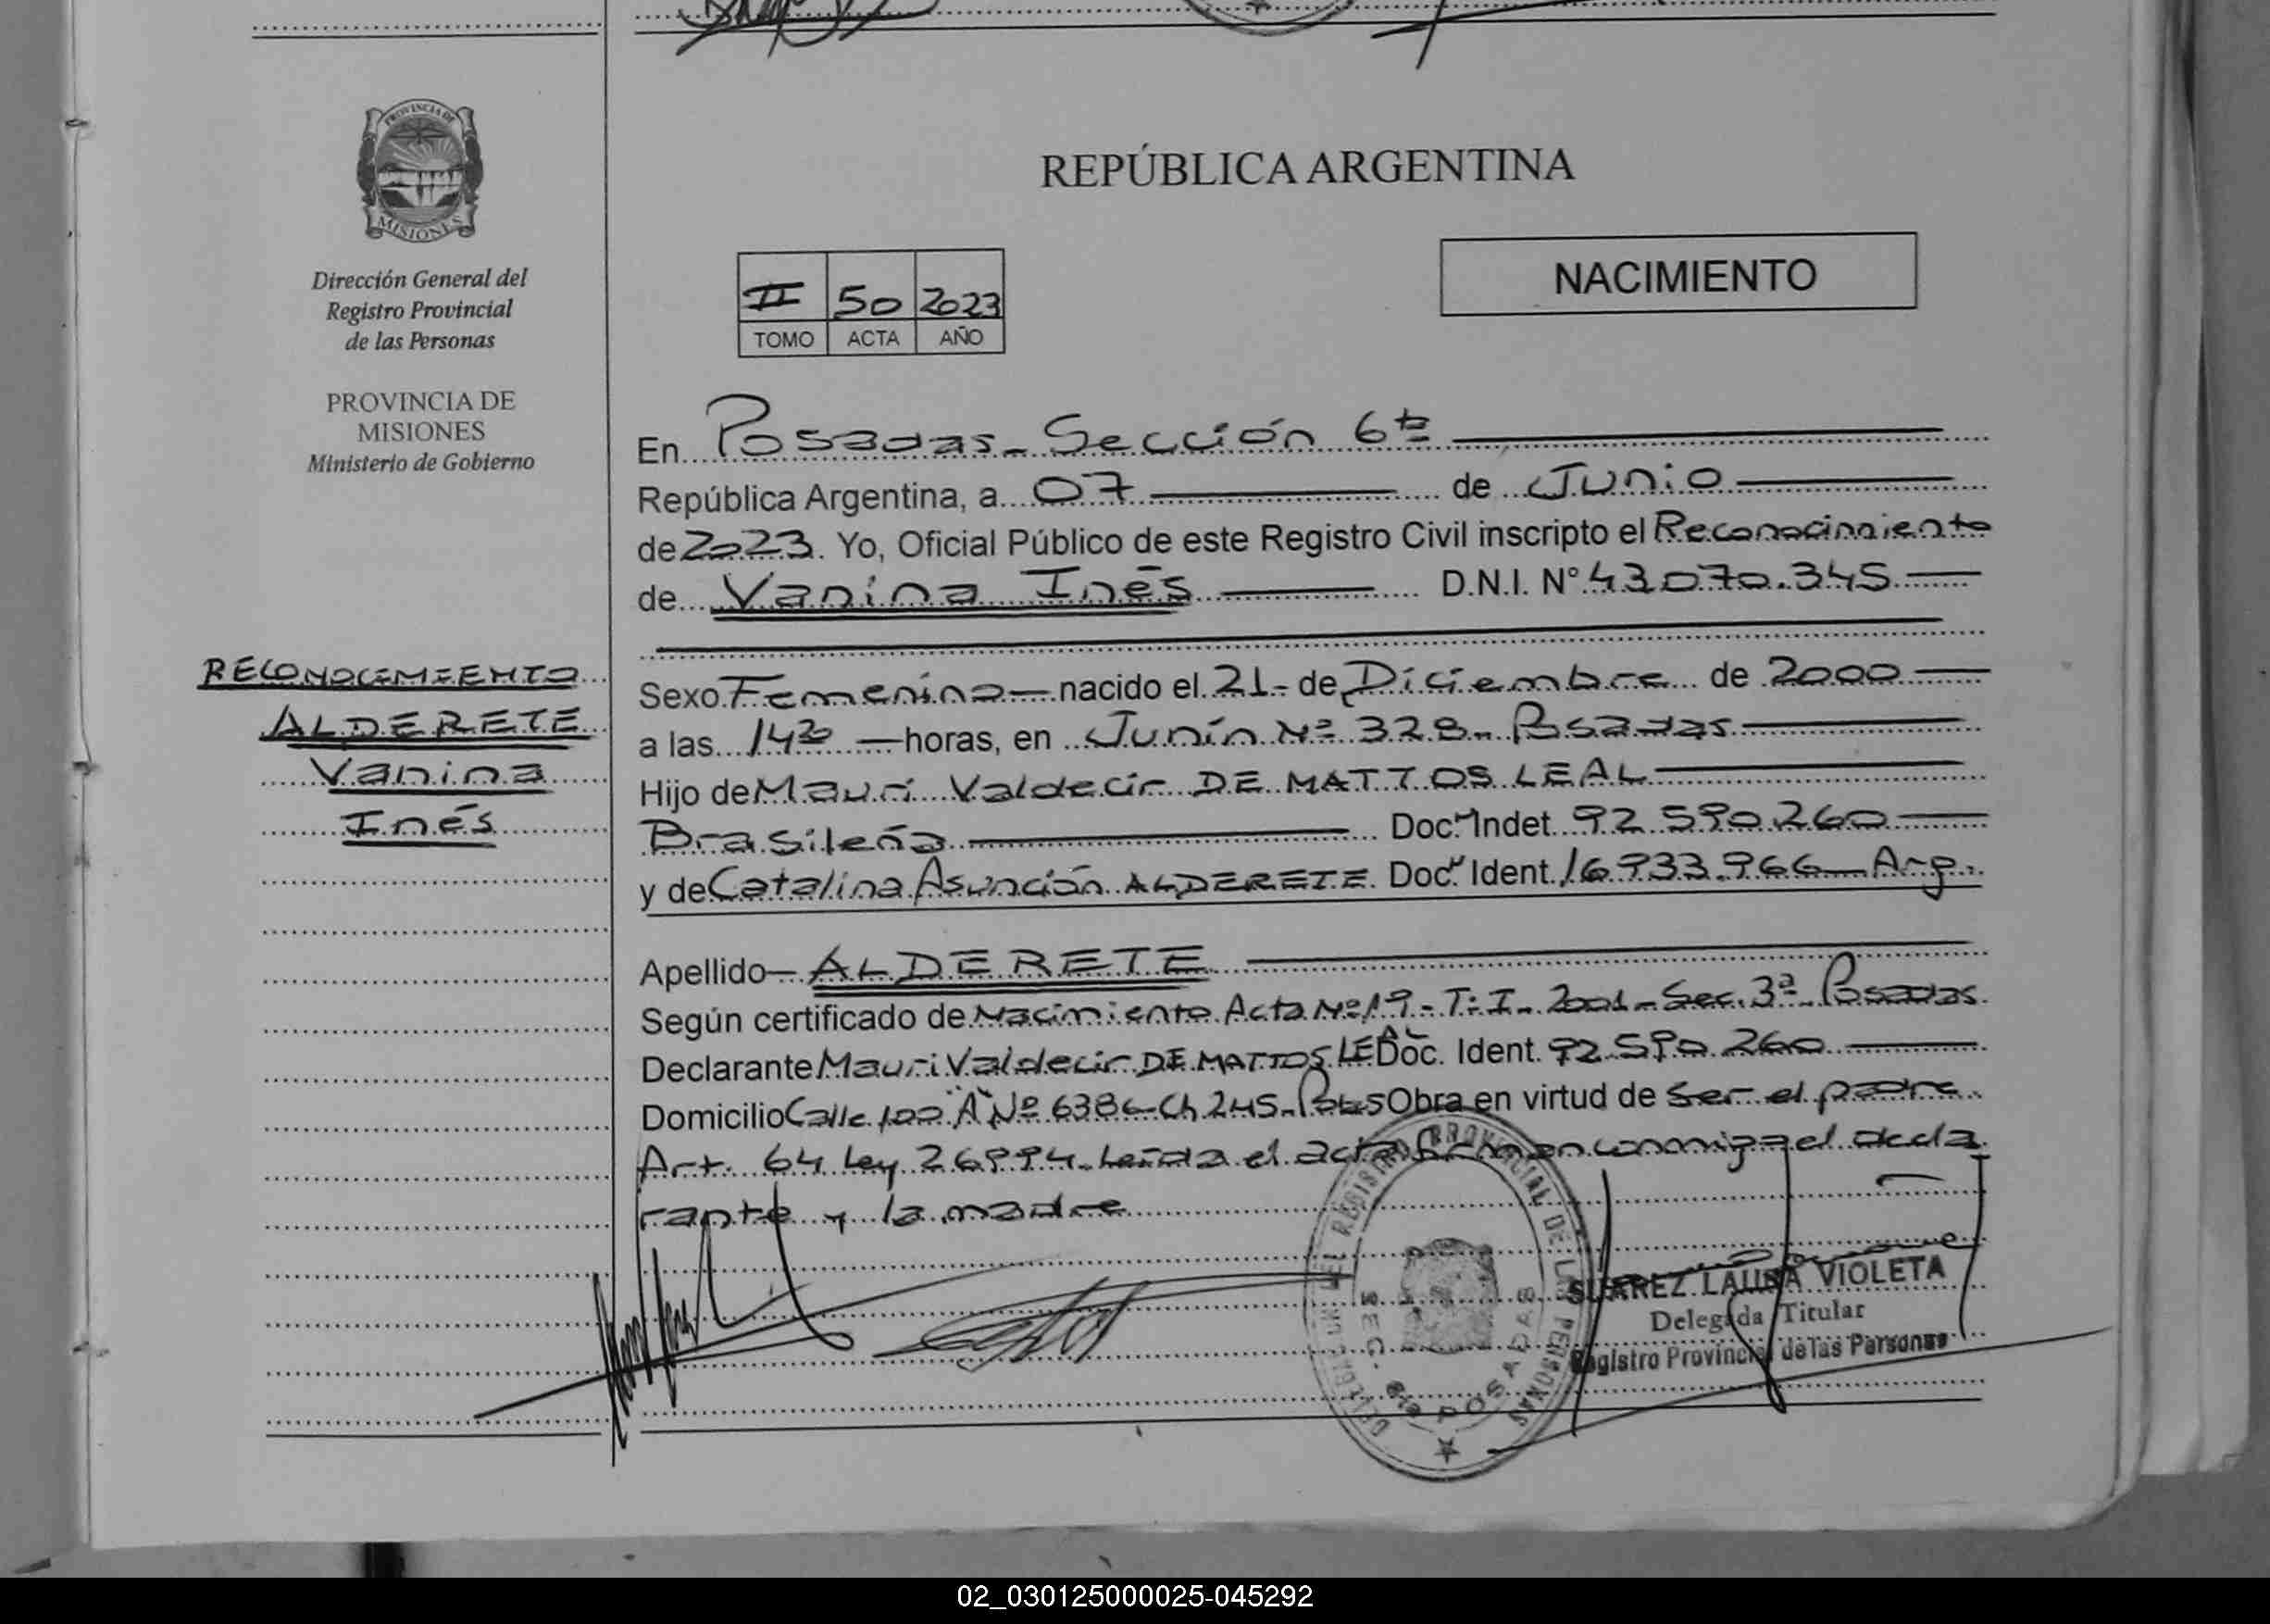 PROVINCIA DE
MISIONES
Dirección General del
Registro Provincial
de las Personas
PROVINCIA DE
MISIONES
Ministerio de Gobierno
RECONOCIMIENTO
ALDERETE
Vanina
Inés
REPÚBLICA ARGENTINA
II 50 2023
TOMO ACTA AÑO
NACIMIENTO
En Posadas - Sección 6ta
República Argentina, a 07 de Junio
de 2023. Yo, Oficial Público de este Registro Civil inscripto el Reconocimiento
de Vanina Inés D.N.I. N° 43.070.345
Sexo Femenino nacido el 21 - de Diciembre de 2000
a las 14 30 horas, en Junín Nº 328 - Posadas
Hijo de Mauri Valdecir DE MATTOS LEAL
Brasileña Doc. Indet. 92.590.260
y de Catalina Asunción ALDERETE Doc. Ident. 16.933.966 - Arg.
Apellido ALDERETE
Según certificado de Nacimiento Acta Nº 19 - T: I - 2001 - Sec. 3ª Posadas
Declarante Mauri Valdecir DE MATTOS LEAL Doc. Ident. 92.590.260
Domicilio Calle 100 "A" Nº 6386 - Ch 245 - Obra en virtud de ser el padre
Art. 64 Ley 26994. Leída el acta firman conmigo el decla
rante y la madre
DELEGACION DEL REGISTRO PROVINCIAL DE LAS PERSONAS
SEC. 6ta POSADAS
SUAREZ LAURA VIOLETA
Delegada Titular
Registro Provincial de las Personas
02_030125000025-045292